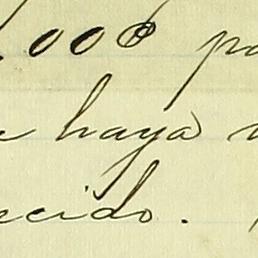 000 pa
haya
ecido.